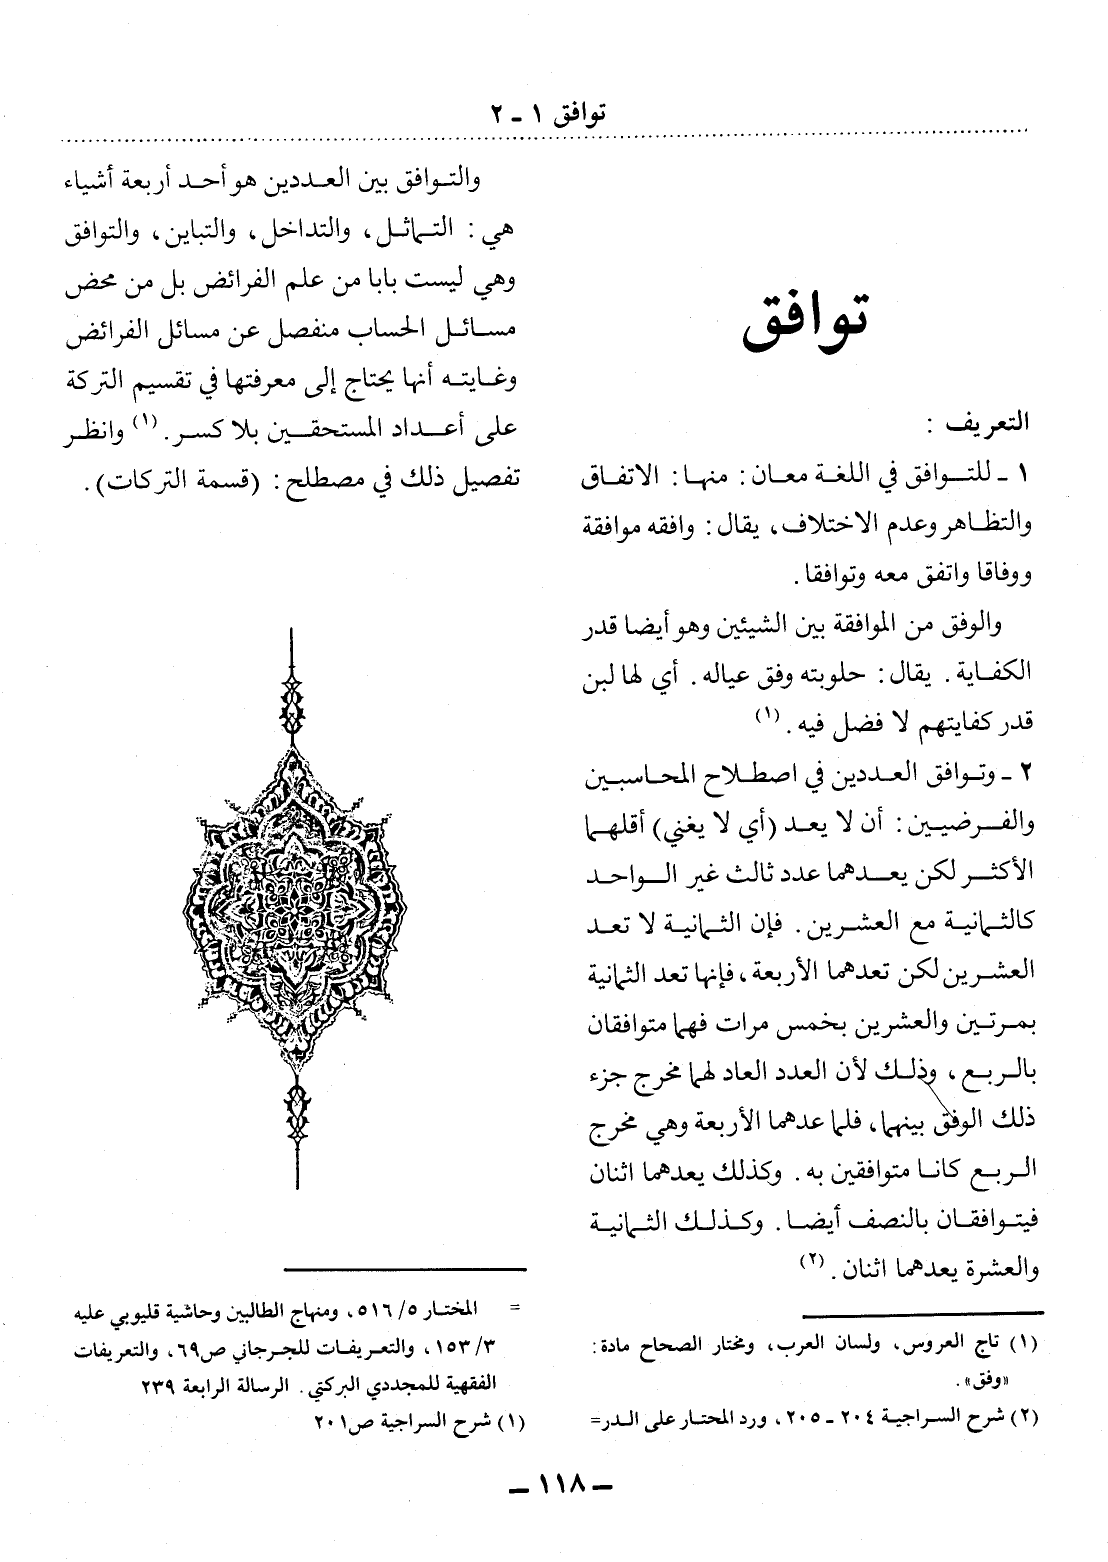 توافق ١ - ٢
توافق
التعريف :
١ - للتوافق في اللغة معان : منها : الاتفاق
والتظاهر وعدم الاختلاف، يقال : وافقه موافقة
ووفاقا واتفق معه وتوافقا .
والوفق من الموافقة بين الشيئين وهو أيضا قدر
الكفاية . يقال : حلوبته وفق عياله . أي لها لبن
قدر كفايتهم لا فضل فيه . (١)
٢ - وتوافق العددين في اصطلاح المحاسبين
والفرضيين : أن لا يعد (أي لا يغني) أقلهما
الأكثر لكن يعدهما عدد ثالث غير الواحد
كالثمانية مع العشرين . فإن الثمانية لا تعد
العشرين لكن تعدهما الأربعة، فإنها تعد الثمانية
بمرتين والعشرين بخمس مرات فهما متوافقان
بالربع، وذلك لأن العدد العاد لهما مخرج جزء
ذلك الوفق بينهما، فلما عدهما الأربعة وهي مخرج
الربع كانا متوافقين به . وكذلك يعدهما اثنان
فيتوافقان بالنصف أيضا . وكذلك الثمانية
والعشرة يعدهما اثنان . (٢)
(١) تاج العروس، ولسان العرب، ومختار الصحاح مادة :
«وفق» .
(٢) شرح السراجية ٢٠٤ - ٢٠٥، ورد المحتار على الدر=
والتوافق بين العددين هو أحد أربعة أشياء
هي : التماثل، والتداخل، والتباين، والتوافق
وهي ليست بابا من علم الفرائض بل من محض
مسائل الحساب منفصل عن مسائل الفرائض
وغايته أنها يحتاج إلى معرفتها في تقسيم التركة
على أعداد المستحقين بلا كسر . (١) وانظر
تفصيل ذلك في مصطلح : (قسمة التركات) .
= المختار ٥/ ٥١٦، ومنهاج الطالبين وحاشية قليوبي عليه
٣/ ١٥٣، والتعريفات للجرجاني ص٦٩، والتعريفات
الفقهية للمجددي البركتي . الرسالة الرابعة ٢٣٩
(١) شرح السراجية ص٢٠١
- ١١٨ -